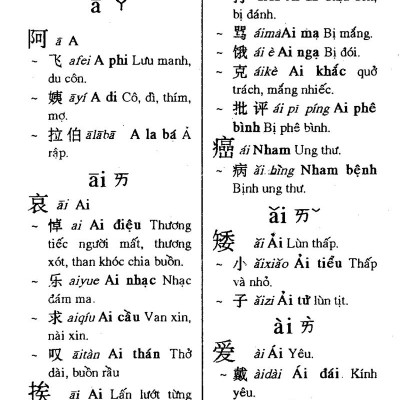 ā ㄚ
阿 ā A
~ 飞 afei A phi Lưu manh,
du côn.
~ 姨 āyí A di Cô, dì, thím,
mợ.
~ 拉伯 ālābā A la bá Ả
rập.
āi ㄞ
哀 āi Ai
~ 悼 ai Ai điệu Thương
tiếc người mất, thương
xót, than khóc chia buồn.
~ 乐 aiyue Ai nhạc Nhạc
đám ma.
~ 求 aiqíu Ai cầu Van xin,
nài xin.
~ 叹 āitàn Ai thán Thở
dài, buồn rầu
挨 āi Ai Lấn lướt từng
bị đánh.
~ 骂 áimà Ai mạ Bị mắng.
~ 饿 ái è Ai ngạ Bị đói.
~ 克 áikè Ai khắc quở
trách, mắng nhiếc.
~ 批评 ái pī píng Ai phê
bình Bị phê bình.
癌 ái Nham Ung thư.
~ 病 ái bìng Nham bệnh
Bịnh ung thư.
ǎi ㄞˇ
矮 ǎi Ải Lùn thấp.
~ 小 ǎixiǎo Ải tiểu Thấp
và nhỏ.
~ 子 ǎizi Ải tử lùn tịt.
ài ㄞˋ
爱 ài Ái Yêu.
~ 戴 àidài Ái đái Kính
yêu.